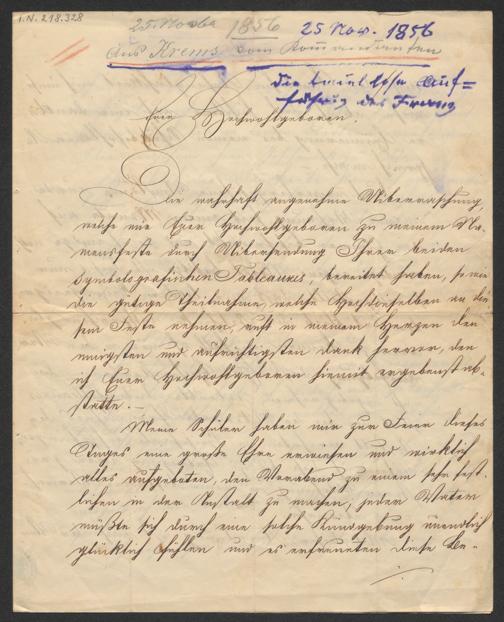 I.N. 218.328
25. Novbr 1856 25 Nov. 1856
Aus Krems vom Kommandanten
die tadellose Auf=
führung des Franz
Euer Hochwohlgeboren.
Die wahrhaft angenehme Ueberraschung,
welche mir Euer Hochwohlgeboren zu meinem Na-
mensfeste durch Uibersendung Ihrer beiden
symbolografischen Tableaux, bereitet haben, sowie
die gütige Theilnahme, welche Hochdieselben an die-
sem Feste nehmen, ruft in meinem Herzen den
innigsten und aufrichtigsten Dank hervor, den
ich Euer Hochwohlgeboren hiemit ergebenst ab-
statte. —
Meine Schüler haben mir zur Feier dieses
Tages eine große Ehre erwiesen und wirklich
alles aufgeboten, den Vorabend zu einem sehr fest-
lichen in der Anstalt zu machen; jeder Vater
müßte sich durch eine solche Kundgebung unendlich
glücklich fühlen und es erfreuten diese Be-